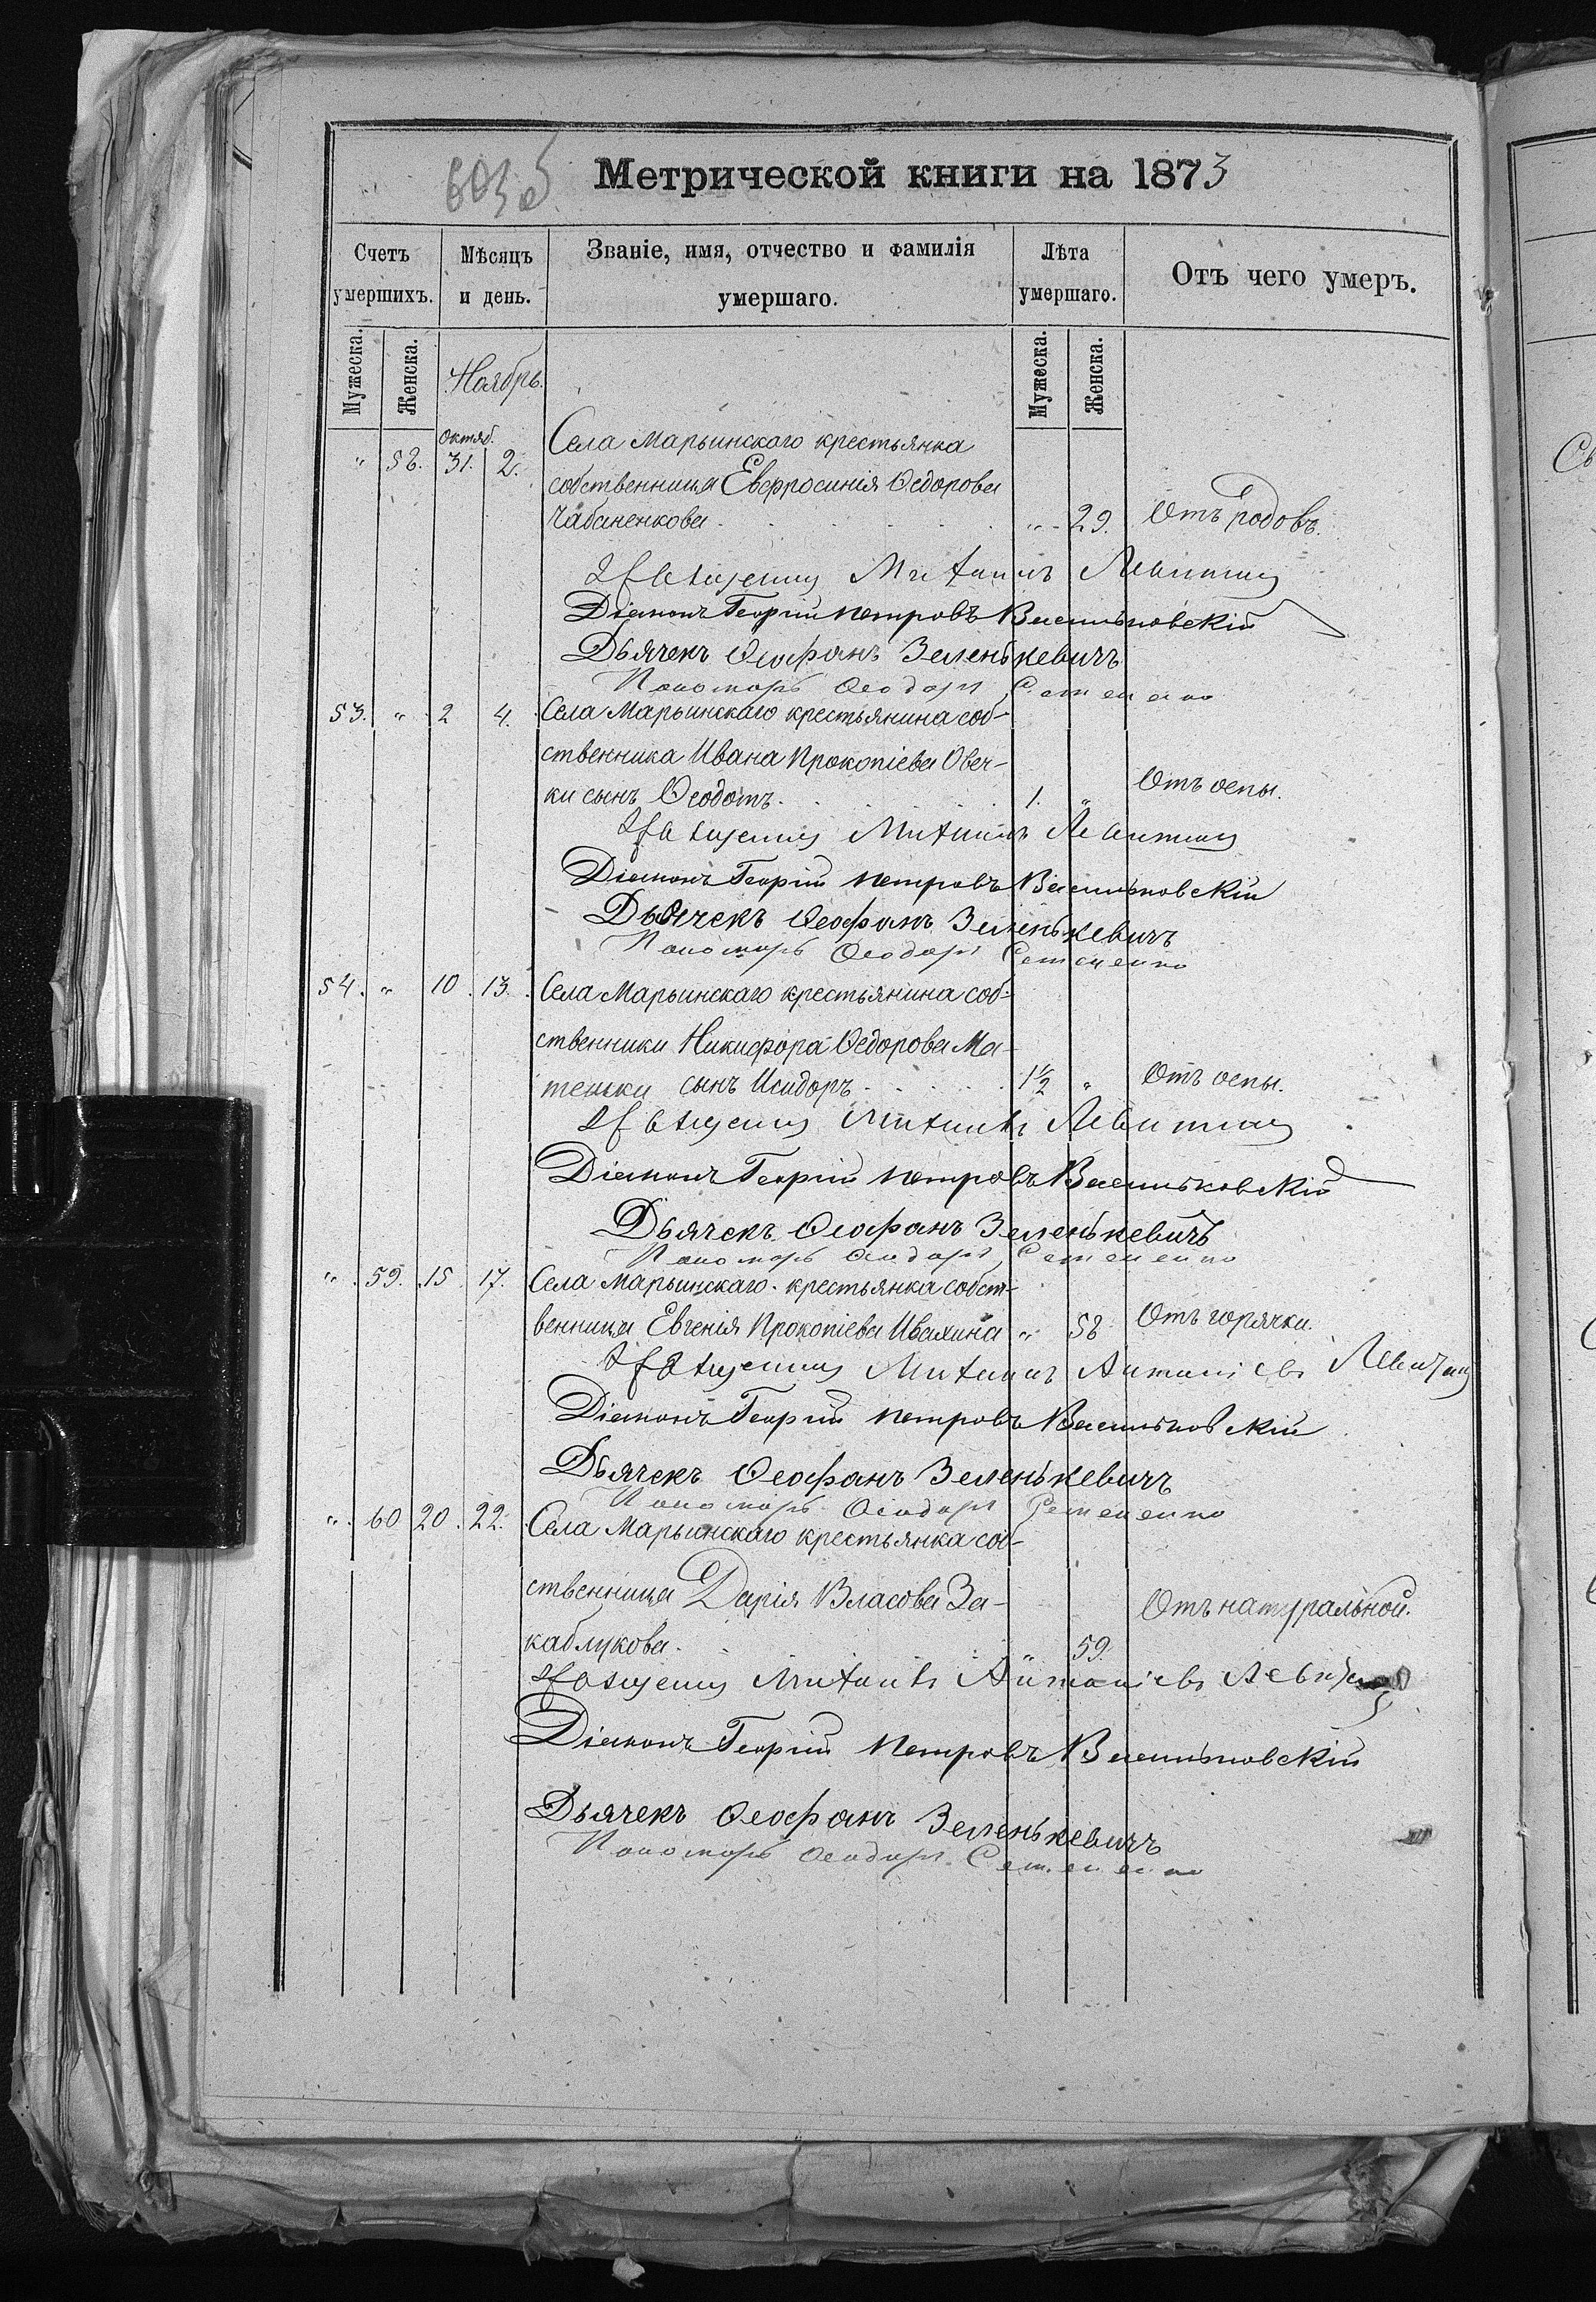 603 об
Метрической книги на 1873
Счетъ умершихъ.
Мѣсяцъ и день.
Званіе, имя, отчество и фамилія умершаго.
Лѣта умершаго.
Отъ чего умеръ.
Мужеска.
Женска.
Ноябрь.
Мужеска.
Женска.
Октяб.
Села Марьинскаго крестьянка
" 58. 31. 2.
собственница Евфросинія Ѳедорова
Чабаненкова. " 29. Отъ родовъ.
Священник Михаилъ Левитский
Діаконъ Георгій Петровъ Васильковскій
Дьячекъ Ѳеофанъ Зеленькевичъ
Пономарь Ѳеодоръ Семененко
53. " 2 4. Села Марьинскаго крестьянина соб-
ственника Ивана Прокопіева Овеч-
ки сынъ Ѳеодотъ. 1. " Отъ оспы.
Священник Михаилъ Левитский
Діаконъ Георгій Петровъ Васильковскій
Дьячекъ Ѳеофанъ Зеленькевичъ
Пономарь Ѳеодоръ Семененко
54. " 10. 13. Села Марьинскаго крестьянина соб-
ственника Никифора Ѳедорова Ма-
теньки сынъ Исидоръ. 1½ " Отъ оспы.
Священник Михаилъ Левитский
Діаконъ Георгій Петровъ Васильковскій
Дьячекъ Ѳеофанъ Зеленькевичъ
Пономарь Ѳеодоръ Семененко
" 59. 15. 17. Села Марьинскаго крестьянка собст-
венница Евгенія Прокопіева Ивахина " 58 Отъ горячки.
Священник Михаилъ Антоніевъ Левитский
Діаконъ Георгій Петровъ Васильковскій
Дьячекъ Ѳеофанъ Зеленькевичъ
Пономарь Ѳеодоръ Семененко
" 60 20. 22. Села Марьинскаго крестьянка соб-
ственница Дарія Власова За-
Отъ натуральной.
каблукова. 59.
Священник Михаилъ Антоніевъ Левитский
Діаконъ Георгій Петровъ Васильковскій
Дьячекъ Ѳеофанъ Зеленькевичъ
Пономарь Ѳеодоръ Семененко